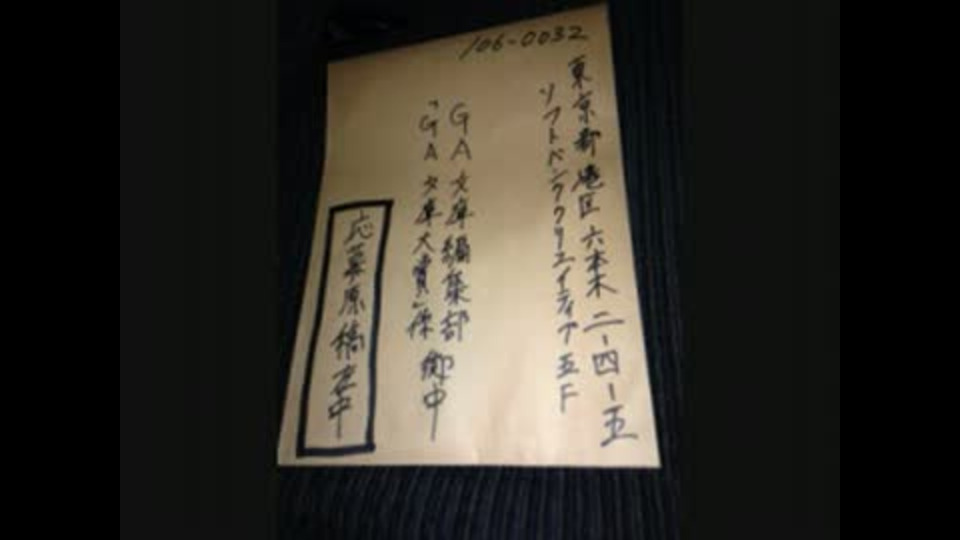 106-0032
東京都港区六本木二-四-五
ソフトバンククリエイティブ五F
GA文庫編集部
「GA文庫大賞」係 御中
応募原稿在中